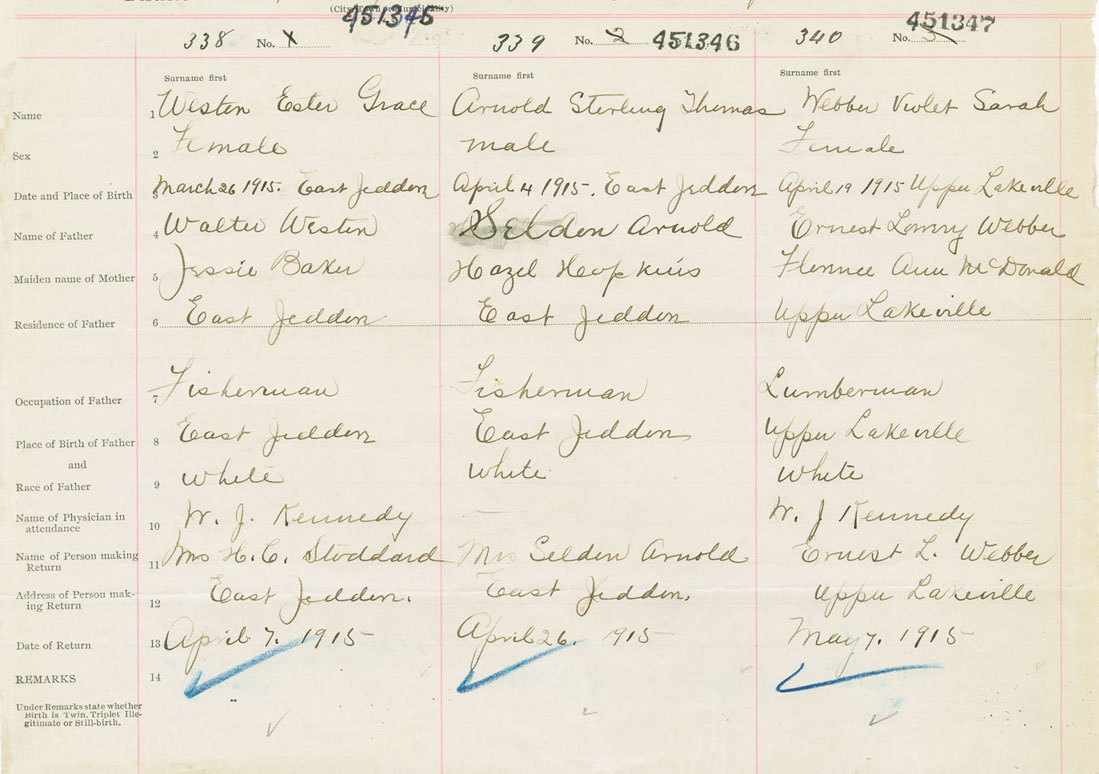 (City, Town or Municipality)
451345
338 No. 1
339 No. 2 451346
340 No. 3 451347
Surname first Surname first Surname first
Name 1 Weston Ester Grace Arnold Sterling Thomas Webber Violet Sarah
Sex 2 Female male Female
Date and Place of Birth 3 March 26 1915. East Jeddon April 4 1915. East Jeddon April 19 1915 Upper Lakeville
Name of Father 4 Walter Weston Seldon Arnold Ernest Lowry Webber
Maiden name of Mother 5 Jessie Baker Hazel Hopkins Florence Ann McDonald
Residence of Father 6 East Jeddon East Jeddon Upper Lakeville
Occupation of Father 7 Fisherman Fisherman Lumberman
Place of Birth of Father 8 East Jeddon East Jeddon Upper Lakeville
and
Race of Father 9 White White White
Name of Physician in
attendance 10 W. J. Kennedy — W. J Kennedy
Name of Person making
Return 11 Mrs H. C. Stoddard Mrs Seldon Arnold Ernest L. Webber
Address of Person mak-
ing Return 12 East Jeddon. East Jeddon. Upper Lakeville
Date of Return 13 April 7. 1915 April 26. 1915 May 7. 1915
REMARKS 14
Under Remarks state whether
Birth is Twin, Triplet Ille-
gitimate or Still-birth.